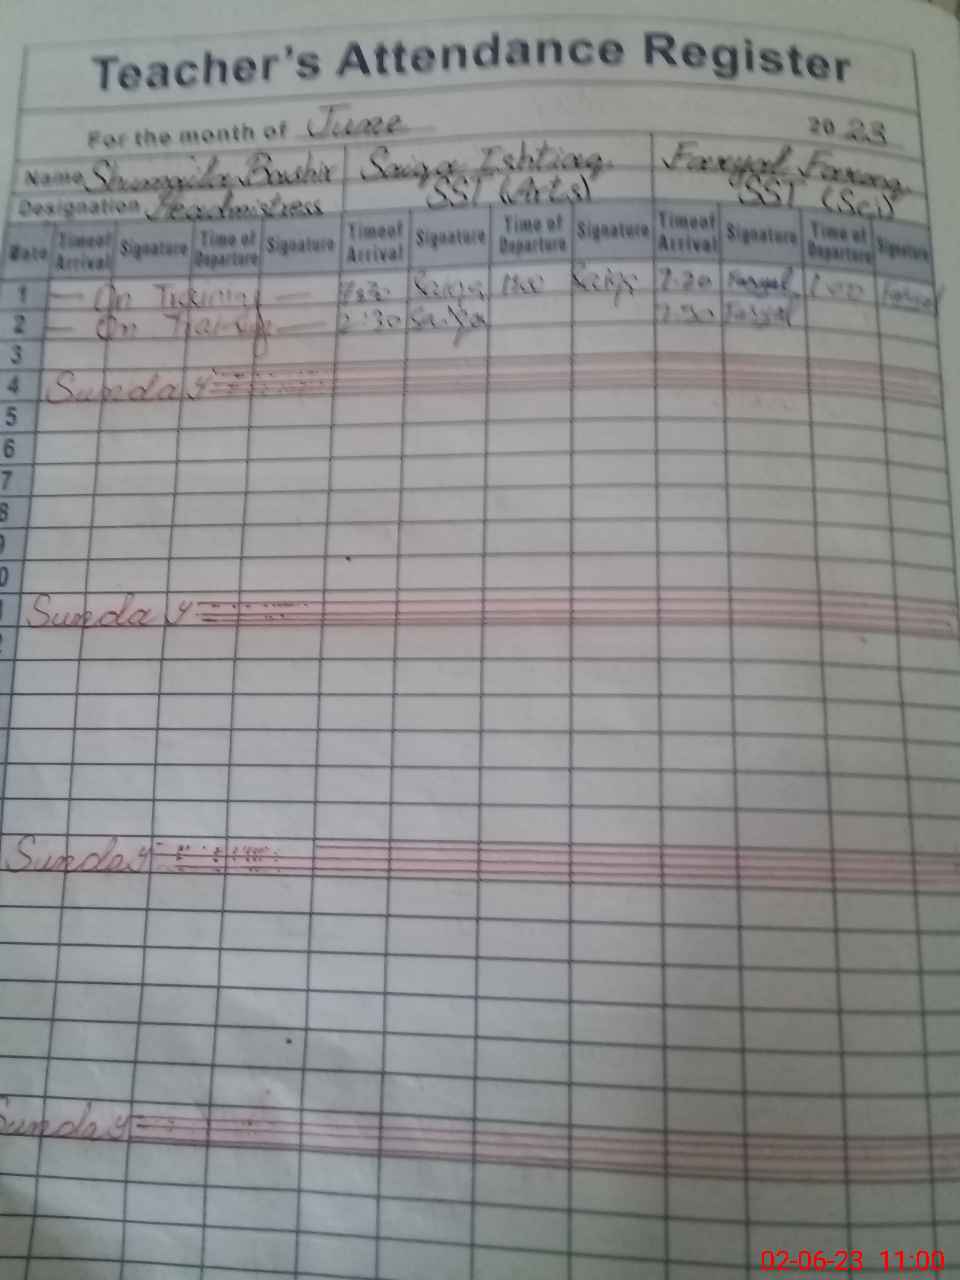 Teacher's Attendance Register
For the month of June 2023
Name Shumaila Bashir Saiqa Ishtiaq Faryal Farooq
Designation Headmistress SST (Arts) SST (Sci)
Date Time of Arrival Signature Time of Departure Signature Time of Arrival Signature Time of Departure Signature Time of Arrival Signature Time of Departure Signature
1 — On Training — 7:30 Saiqa Saiqa 7.30 Faryal 1 00 Faryal
2 — On Training — 7:30 Saiqa 7.30 Faryal
3
4 Sunday
5
6
7
8
9
0
Sunday
Sunday
Sunday
02-06-23 11:00